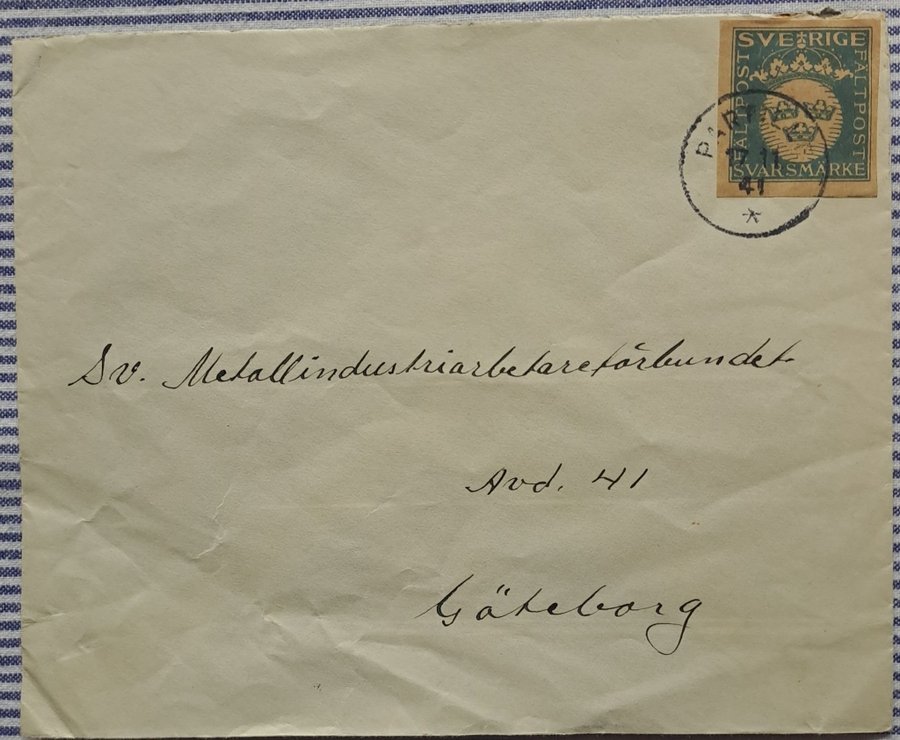 SVERIGE
FÄLTPOST
FÄLTPOST
SVARSMÄRKE
17 11
41
Sv. Metallindustriarbetareförbundet
Avd. 41
Göteborg